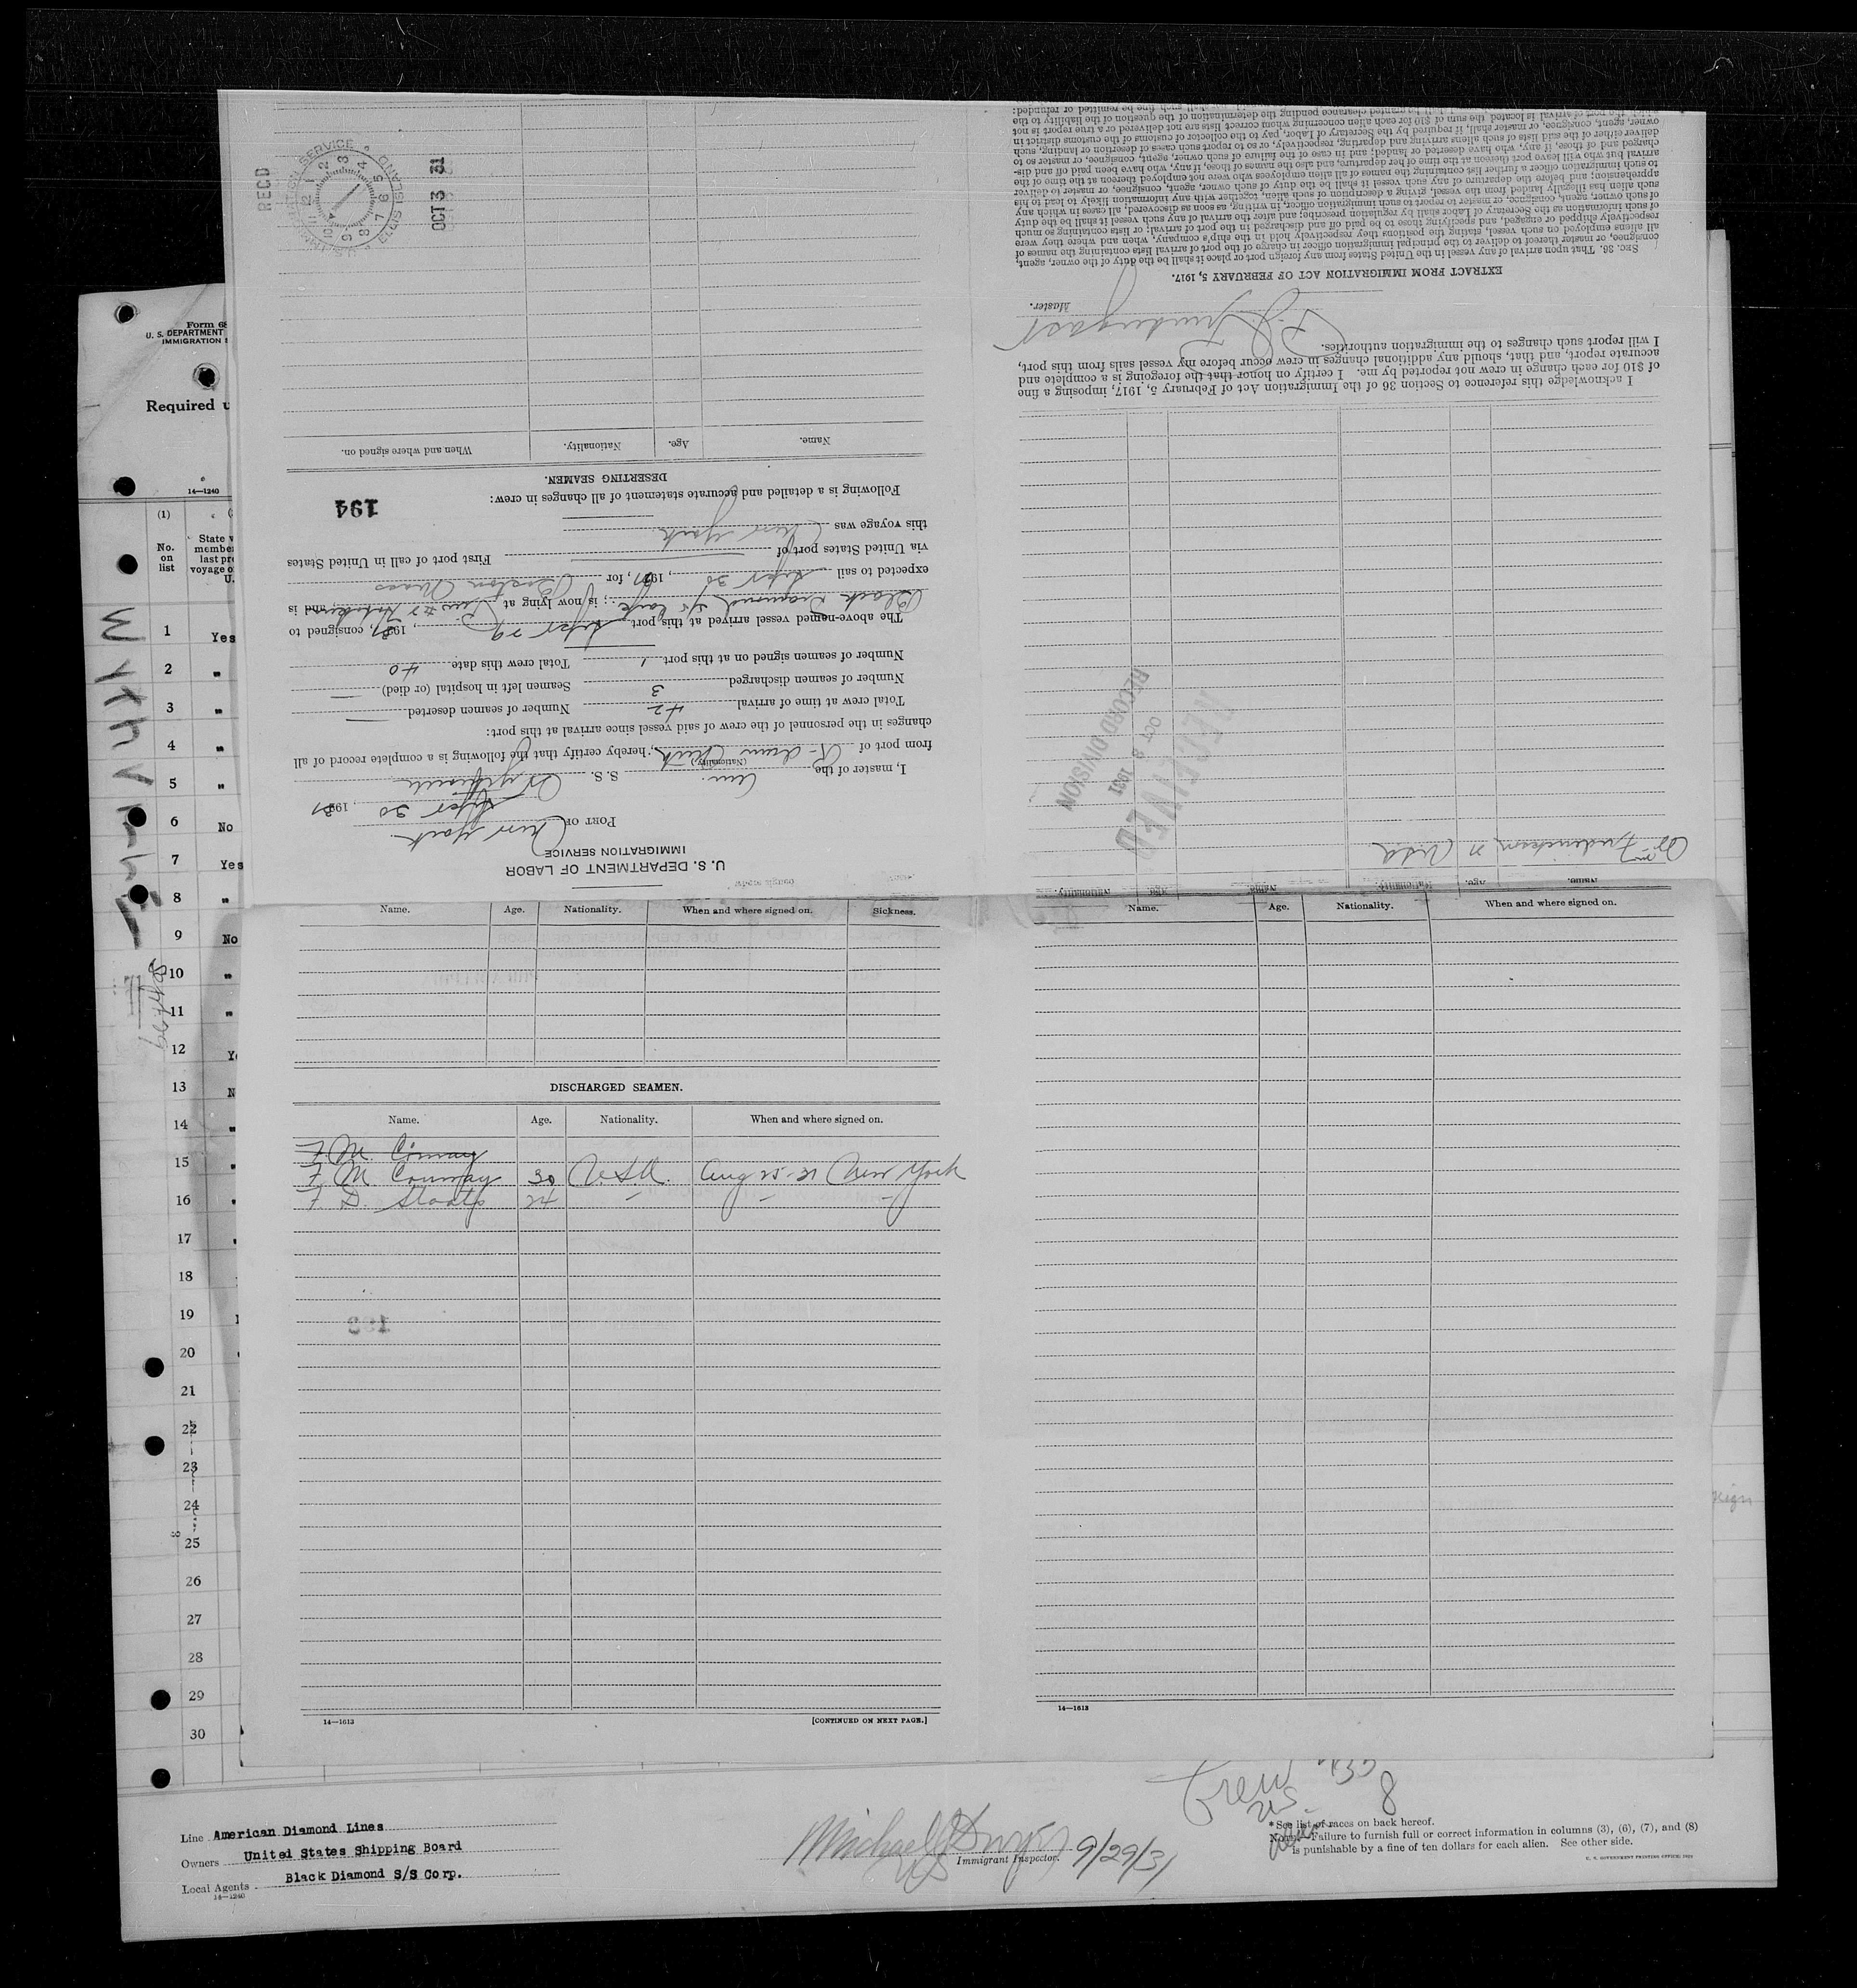 Form 68
U. S. DEPARTMENT
IMMIGRATION
Required u
14—1240
(1)
No.
on
list
State w
member
last pre
voyage o
U.
1 Yes
2 "
3 "
4 "
5 "
6 No
7 Yes
8 "
9 No
10 "
11 "
12 Ye
13 N
14 "
15 "
16 "
17
18
19
20
21
22
23
24
25
26
27
28
29
30
U. S. DEPARTMENT OF LABOR
IMMIGRATION SERVICE
PORT OF New York
Sept 30, 1931
I, master of the Am. S. S.
(Nationality)
from port of, hereby certify that the following is a complete record of all
changes in the personnel of the crew of said vessel since arrival at this port:
Total crew at time of arrival 42 Number of seamen deserted —
Number of seamen discharged 3 Seamen left in hospital (or died) —
Number of seamen signed on at this port 1 Total crew this date 40
The above-named vessel arrived at this port Sept 29, 1931, consigned to
Black Diamond SS Corp.; is now lying at Pier #7 Hoboken; and is
expected to sail Sept 30, 1931, for Boston Mass
via United States port of First port of call in United States
this voyage was New York
Following is a detailed and accurate statement of all changes in crew:
194
DESERTING SEAMEN.
Name. Age. Nationality. When and where signed on.
RECD
U.S. IMMIGRATION SERVICE ELLIS ISLAND
OCT 3 31
Name. Age. Nationality.
Frederickson USA
RECEIVED
OCT 8 1931
RECORD DIVISION
I acknowledge this reference to Section 36 of the Immigration Act of February 5, 1917, imposing a fine
of $10 for each change in crew not reported by me. I certify on honor that the foregoing is a complete and
accurate report, and that, should any additional changes in crew occur before my vessel sails from this port,
I will report such changes to the immigration authorities.
Master.
EXTRACT FROM IMMIGRATION ACT OF FEBRUARY 5, 1917.
SEC. 36. That upon arrival of any vessel in the United States from any foreign port or place it shall be the duty of the owner, agent,
consignee, or master thereof to deliver to the principal immigration officer in charge of the port of arrival lists containing the names of
all aliens employed on such vessel, stating the positions they respectively hold in the ship's company, when and where they were
respectively shipped or engaged, and specifying those to be paid off and discharged in the port of arrival; or lists containing so much
of such information as the Secretary of Labor shall by regulation prescribe; and after the arrival of any such vessel it shall be the duty
of such owner, agent, consignee, or master to report to such immigration officer, in writing, as soon as discovered, all cases in which any
such alien has illegally landed from the vessel, giving a description of such alien, together with any information likely to lead to his
apprehension; and before the departure of any such vessel it shall be the duty of such owner, agent, consignee, or master to deliver
to such immigration officer a further list containing the names of all alien employees who were not employed thereon at the time of the
arrival but who will leave port thereon at the time of her departure, and also the names of those, if any, who have been paid off and dis-
charged and of those, if any, who have deserted or landed; and in case of the failure of such owner, agent, consignee, or master so to
deliver either of the said lists of such aliens arriving and departing, respectively, or so to report such cases of desertion or landing, such
owner, agent, consignee, or master shall, if required by the Secretary of Labor, pay to the collector of customs of the customs district in
which the port of arrival is located the sum of $10 for each alien concerning whom correct lists are not delivered or a true report is not
Name. Age. Nationality. When and where signed on. Sickness.
DISCHARGED SEAMEN.
Name. Age. Nationality. When and where signed on.
F. M. Conway
F. M. Conway 30 USA. Aug 25-31 New York
F. D. Staats 24 — — —
14—1613
[CONTINUED ON NEXT PAGE.]
Name. Age. Nationality. When and where signed on.
14—1613
Line American Diamond Lines
Owners United States Shipping Board
Local Agents Black Diamond S/S Corp.
14—1240
Michael Dwyer
Immigrant Inspector. 9/29/31
Crew
*See list of races on back hereof.
NOTE.—Failure to furnish full or correct information in columns (3), (6), (7), and (8)
is punishable by a fine of ten dollars for each alien. See other side.
U. S. GOVERNMENT PRINTING OFFICE: